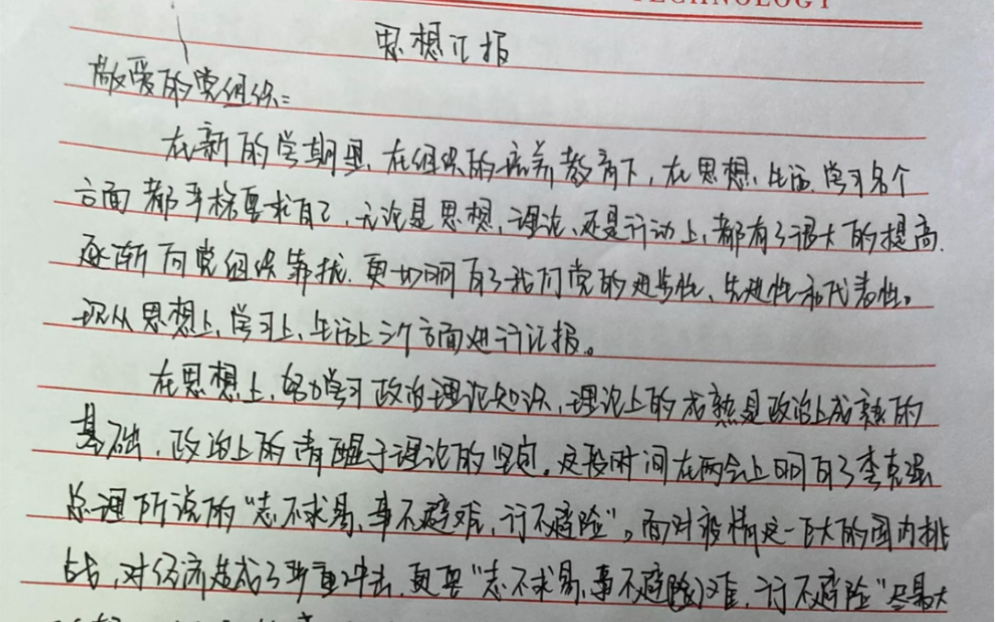 TECHNOLOGY
思想汇报
敬爱的党组织:
在新的学期里,在组织的培养教育下,在思想、生活、学习各个
方面都严格要求自己,无论是思想,理论、还是行动上,都有了很大的提高.
逐渐向党组织靠拢.更切明白了我们党的进步性、先进性和代表性。
现从思想上,学习上,生活上三个方面进行汇报。
在思想上,努力学习政治理论知识,理论上的成熟是政治上成熟的
基础,政治上的清醒于理论的坚定。这段时间在两会上明白了李克强
总理所说的“志不求易,事不避难,行不避险”。面对疫情这一巨大的国内挑
战,对经济造成了严重冲击,更要“志不求易,事不避难,行不避险”尽最大